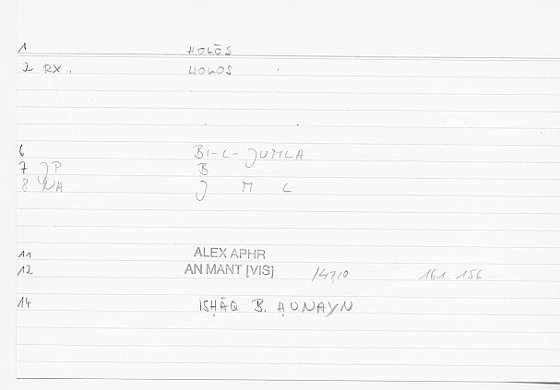 1 HOLŌS
2 RX. HOLOS
6 BI-L-JUMLA
7 JP B
8 NA J M L
11 ALEX APHR
12 AN MANT [VIS] 147,10 161.156
14 ISḤĀQ B. ḤUNAYN